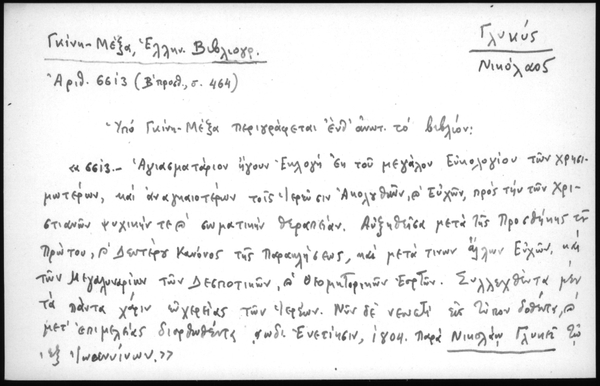 Γκίνη-Μέξα, Ἑλλην. Βιβλιογρ.
Γλυκύς
Νικόλαος
Ἀριθ. 6613 (Β' προσθ., σ. 464)
Ὑπό Γκίνη-Μέξα περιγράφεται ἐνθ' ἀνωτ. τό βιβλίον:
«6613.- Ἁγιασματάριον ἤγουν Ἐκλογή ἐκ τοῦ μεγάλου Εὐχολογίου τῶν χρησι-
μωτέρων, καί ἀναγκαιοτέρων τοῖς Ἱερεῦσιν Ἀκολουθιῶν, ϗ Εὐχῶν, πρός τήν τῶν Χρι-
στιανῶν ψυχικήν τε ϗ σωματικήν θεραπείαν. Αὐξηθεῖσα μετά τῆς Προσθήκης τοῦ
Πρώτου, ϗ Δευτέρου Κανόνος τῆς Παρακλήσεως, καί μετά τινων ἄλλων Εὐχῶν, καί
τῶν Μεγαλυναρίων τῶν Δεσποτικῶν, ϗ Θεομητορικῶν Ἑορτῶν. Συλλεχθέντα μέν
τά πάντα χάριν εὐχερείας τῶν Ἱερέων. Νῦν δέ νεωστί εἰς τύπον δοθέντα, ϗ
μετ' ἐπιμελείας διορθωθέντα. Ἐνετίησιν, 1804. Παρά Νικολάῳ Γλυκεῖ τῷ
ἐξ Ἰωαννίνων.»